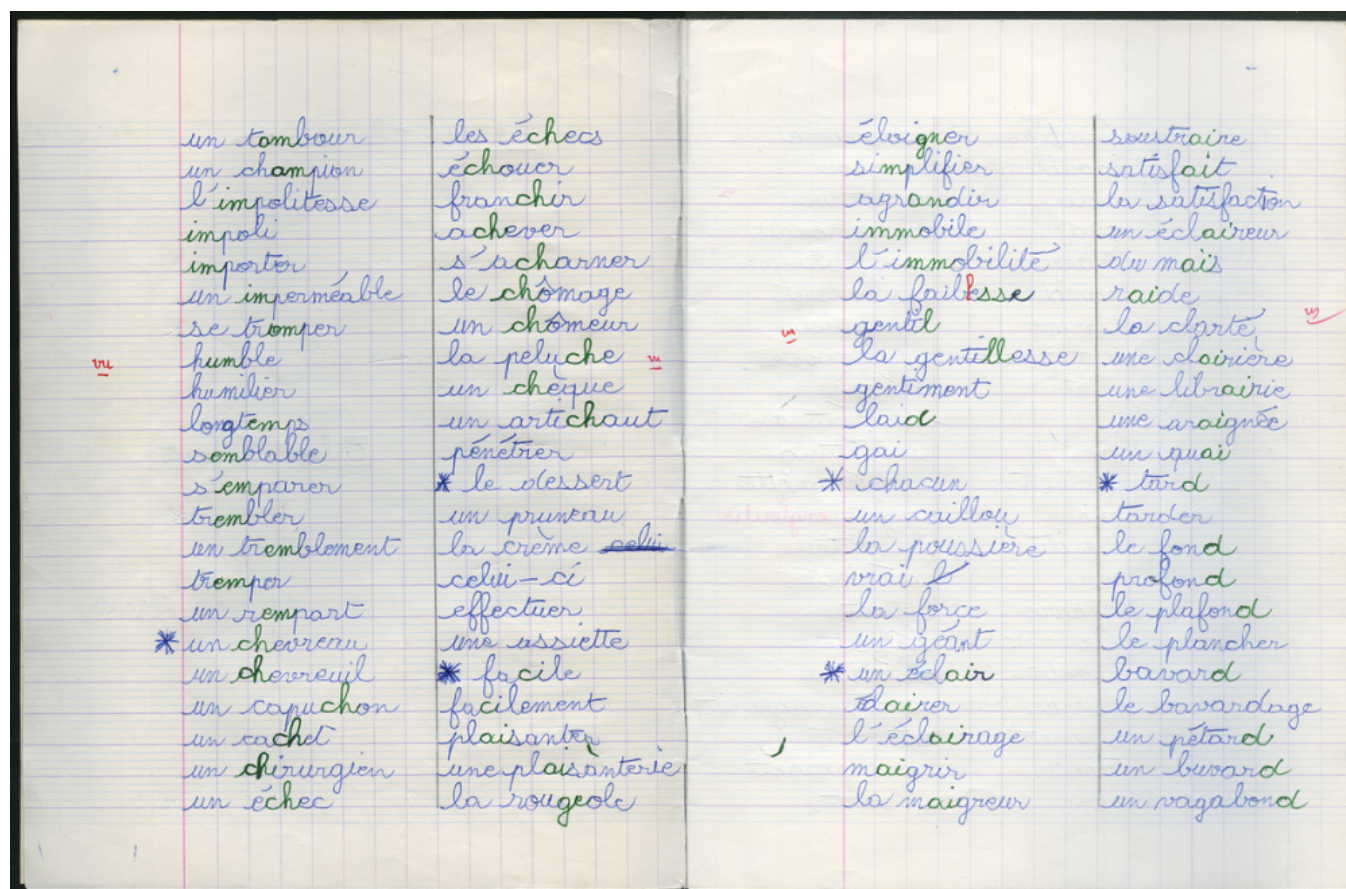 un tambour
un champion
l'impolitesse
impoli
importer
un imperméable
se tromper
humble
humilier
longtemps
semblable
s'emparer
trembler
un tremblement
tremper
un rempart
* un chevreau
un chevreuil
un capuchon
un cachet
un chirurgien
un échec
vu
les échecs
échouer
franchir
achever
s'acharner
le chômage
un chômeur
la peluche
un chèque
un artichaut
pénétrer
* le dessert
un pruneau
la crème celui
celui-ci
effectuer
une assiette
* facile
facilement
plaisanter
une plaisanterie
la rougeole
vu
éloigner
simplifier
agrandir
immobile
l'immobilité
la faiblesse
gentil
la gentillesse
gentiment
laid
gai
* chacun
un caillou
la poussière
vrai
la force
un géant
* un éclair
éclairer
l'éclairage
maigrir
la maigreur
vu
soustraire
satisfait
la satisfaction
un éclaireur
du maïs
raide
la clarté
une clairière
une librairie
une araignée
un quai
* tard
tarder
le fond
profond
le plafond
le plancher
bavard
le bavardage
un pétard
un buvard
un vagabond
vu